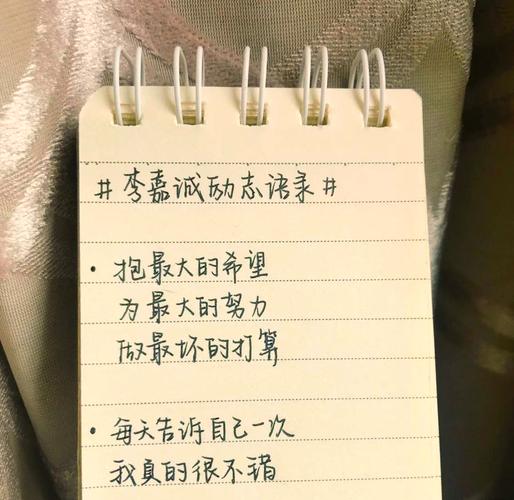 #李嘉诚励志语录#
· 抱最大的希望
为最大的努力
做最坏的打算
· 每天告诉自己一次
我真的很不错